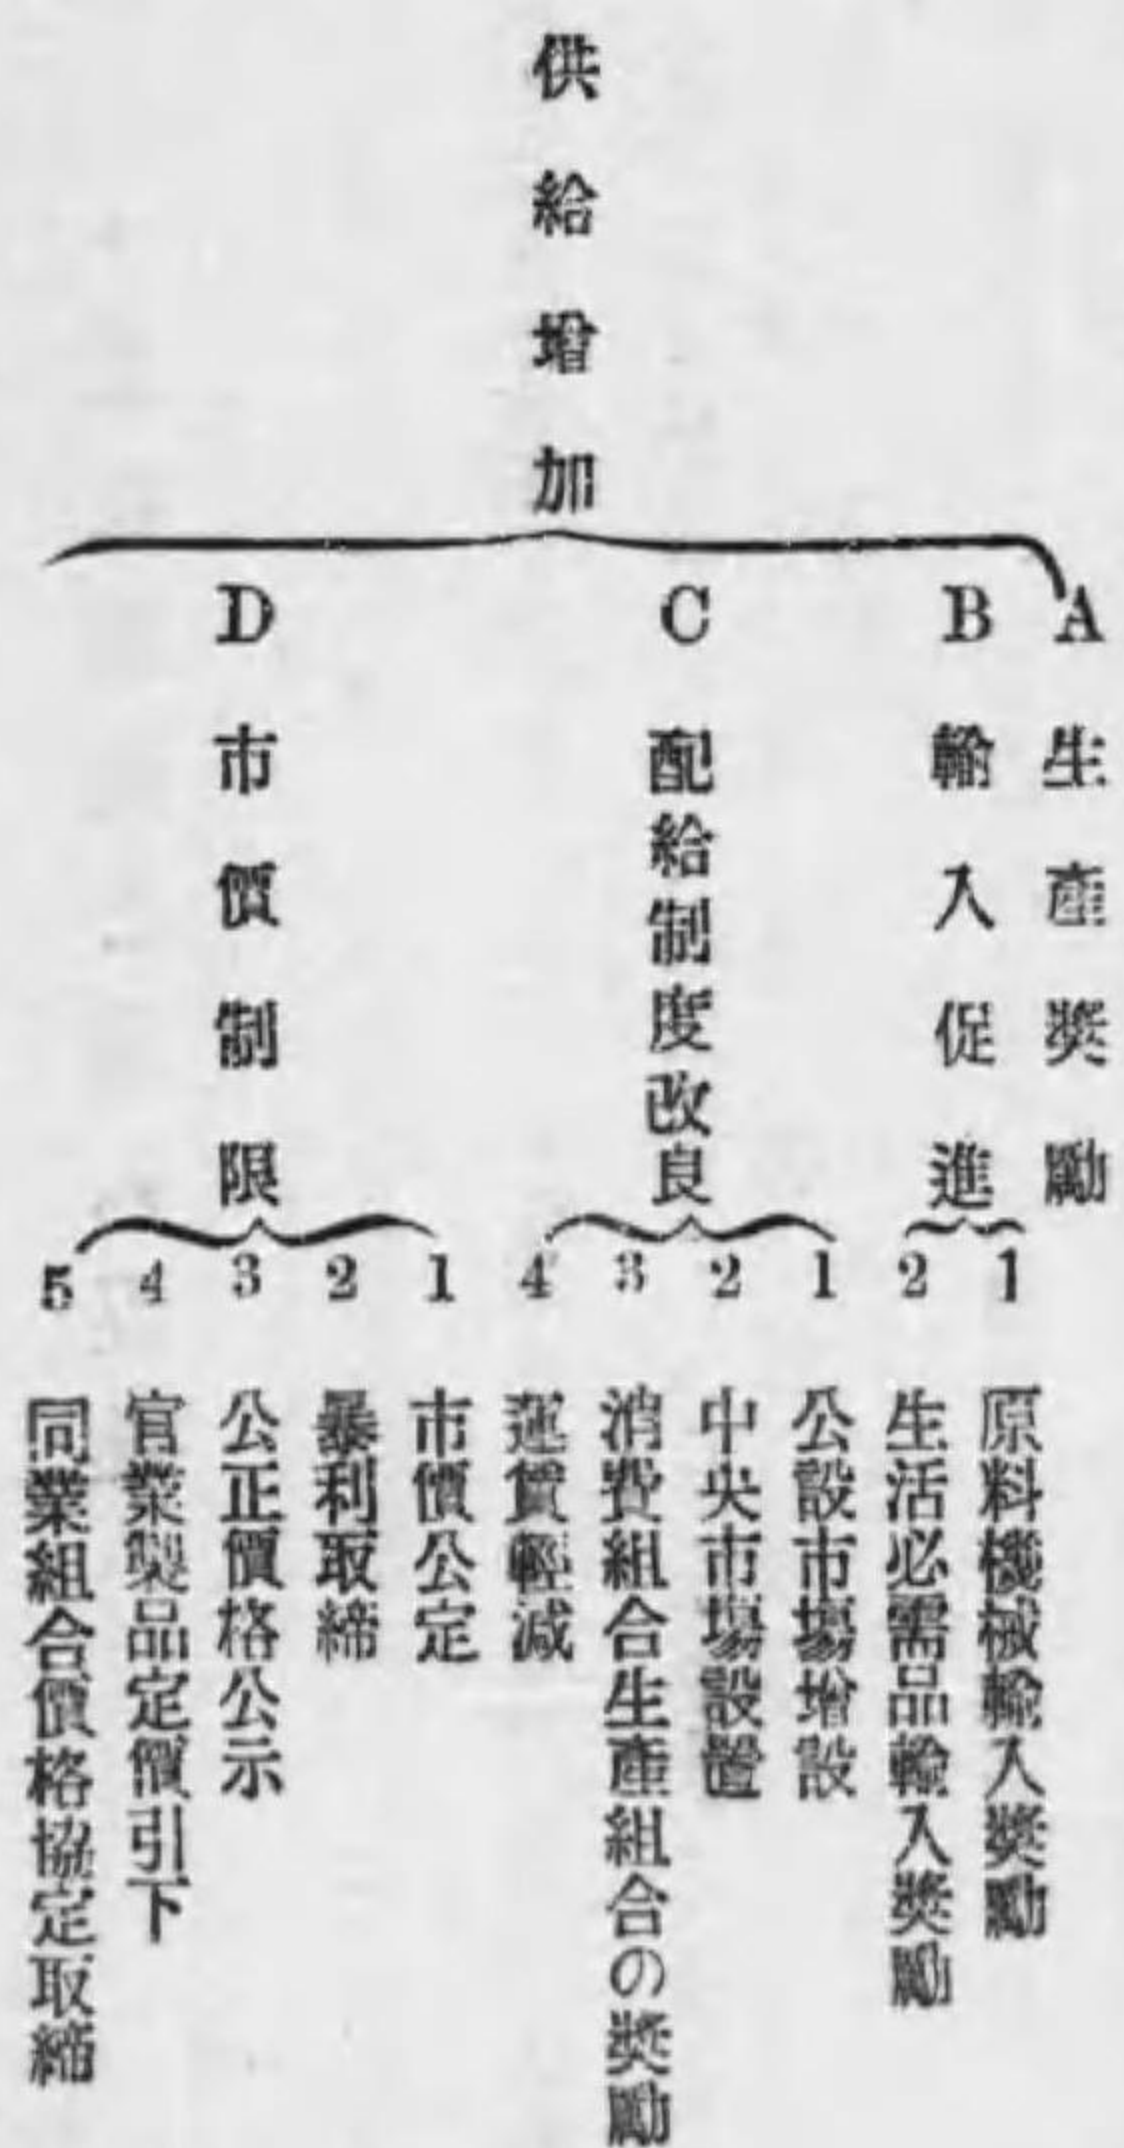 供給增加
A 生產奬勵
B 輸入促進
1 原料機械輸入奬勵
2 生活必需品輸入奬勵
C 配給制度改良
1 公設市場增設
2 中央市場設置
3 消費組合生產組合の奬勵
4 運賃輕減
D 市價制限
1 市價公定
2 暴利取締
3 公正價格公示
4 官業製品定價引下
5 同業組合價格協定取締